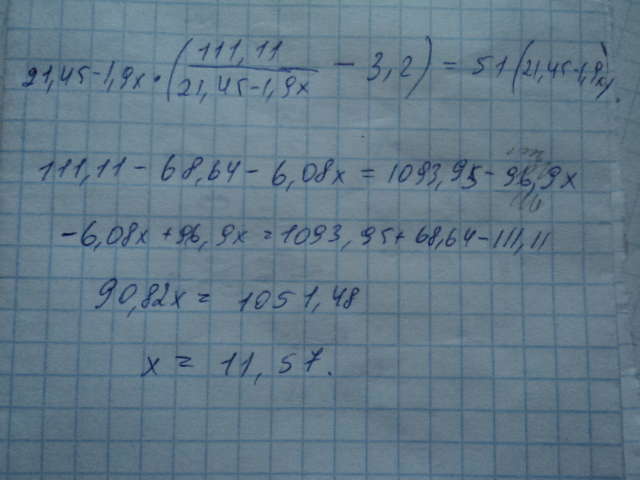 21,45-1,9x·(111,11/21,45-1,9x - 3,2) = 51(21,45-1,9x).
111,11 - 68,64 - 6,08x = 1093,95 - 96,9x
-6,08x + 96,9x = 1093,95 + 68,64 - 111,11
90,82x = 1051,48
x = 11,57.